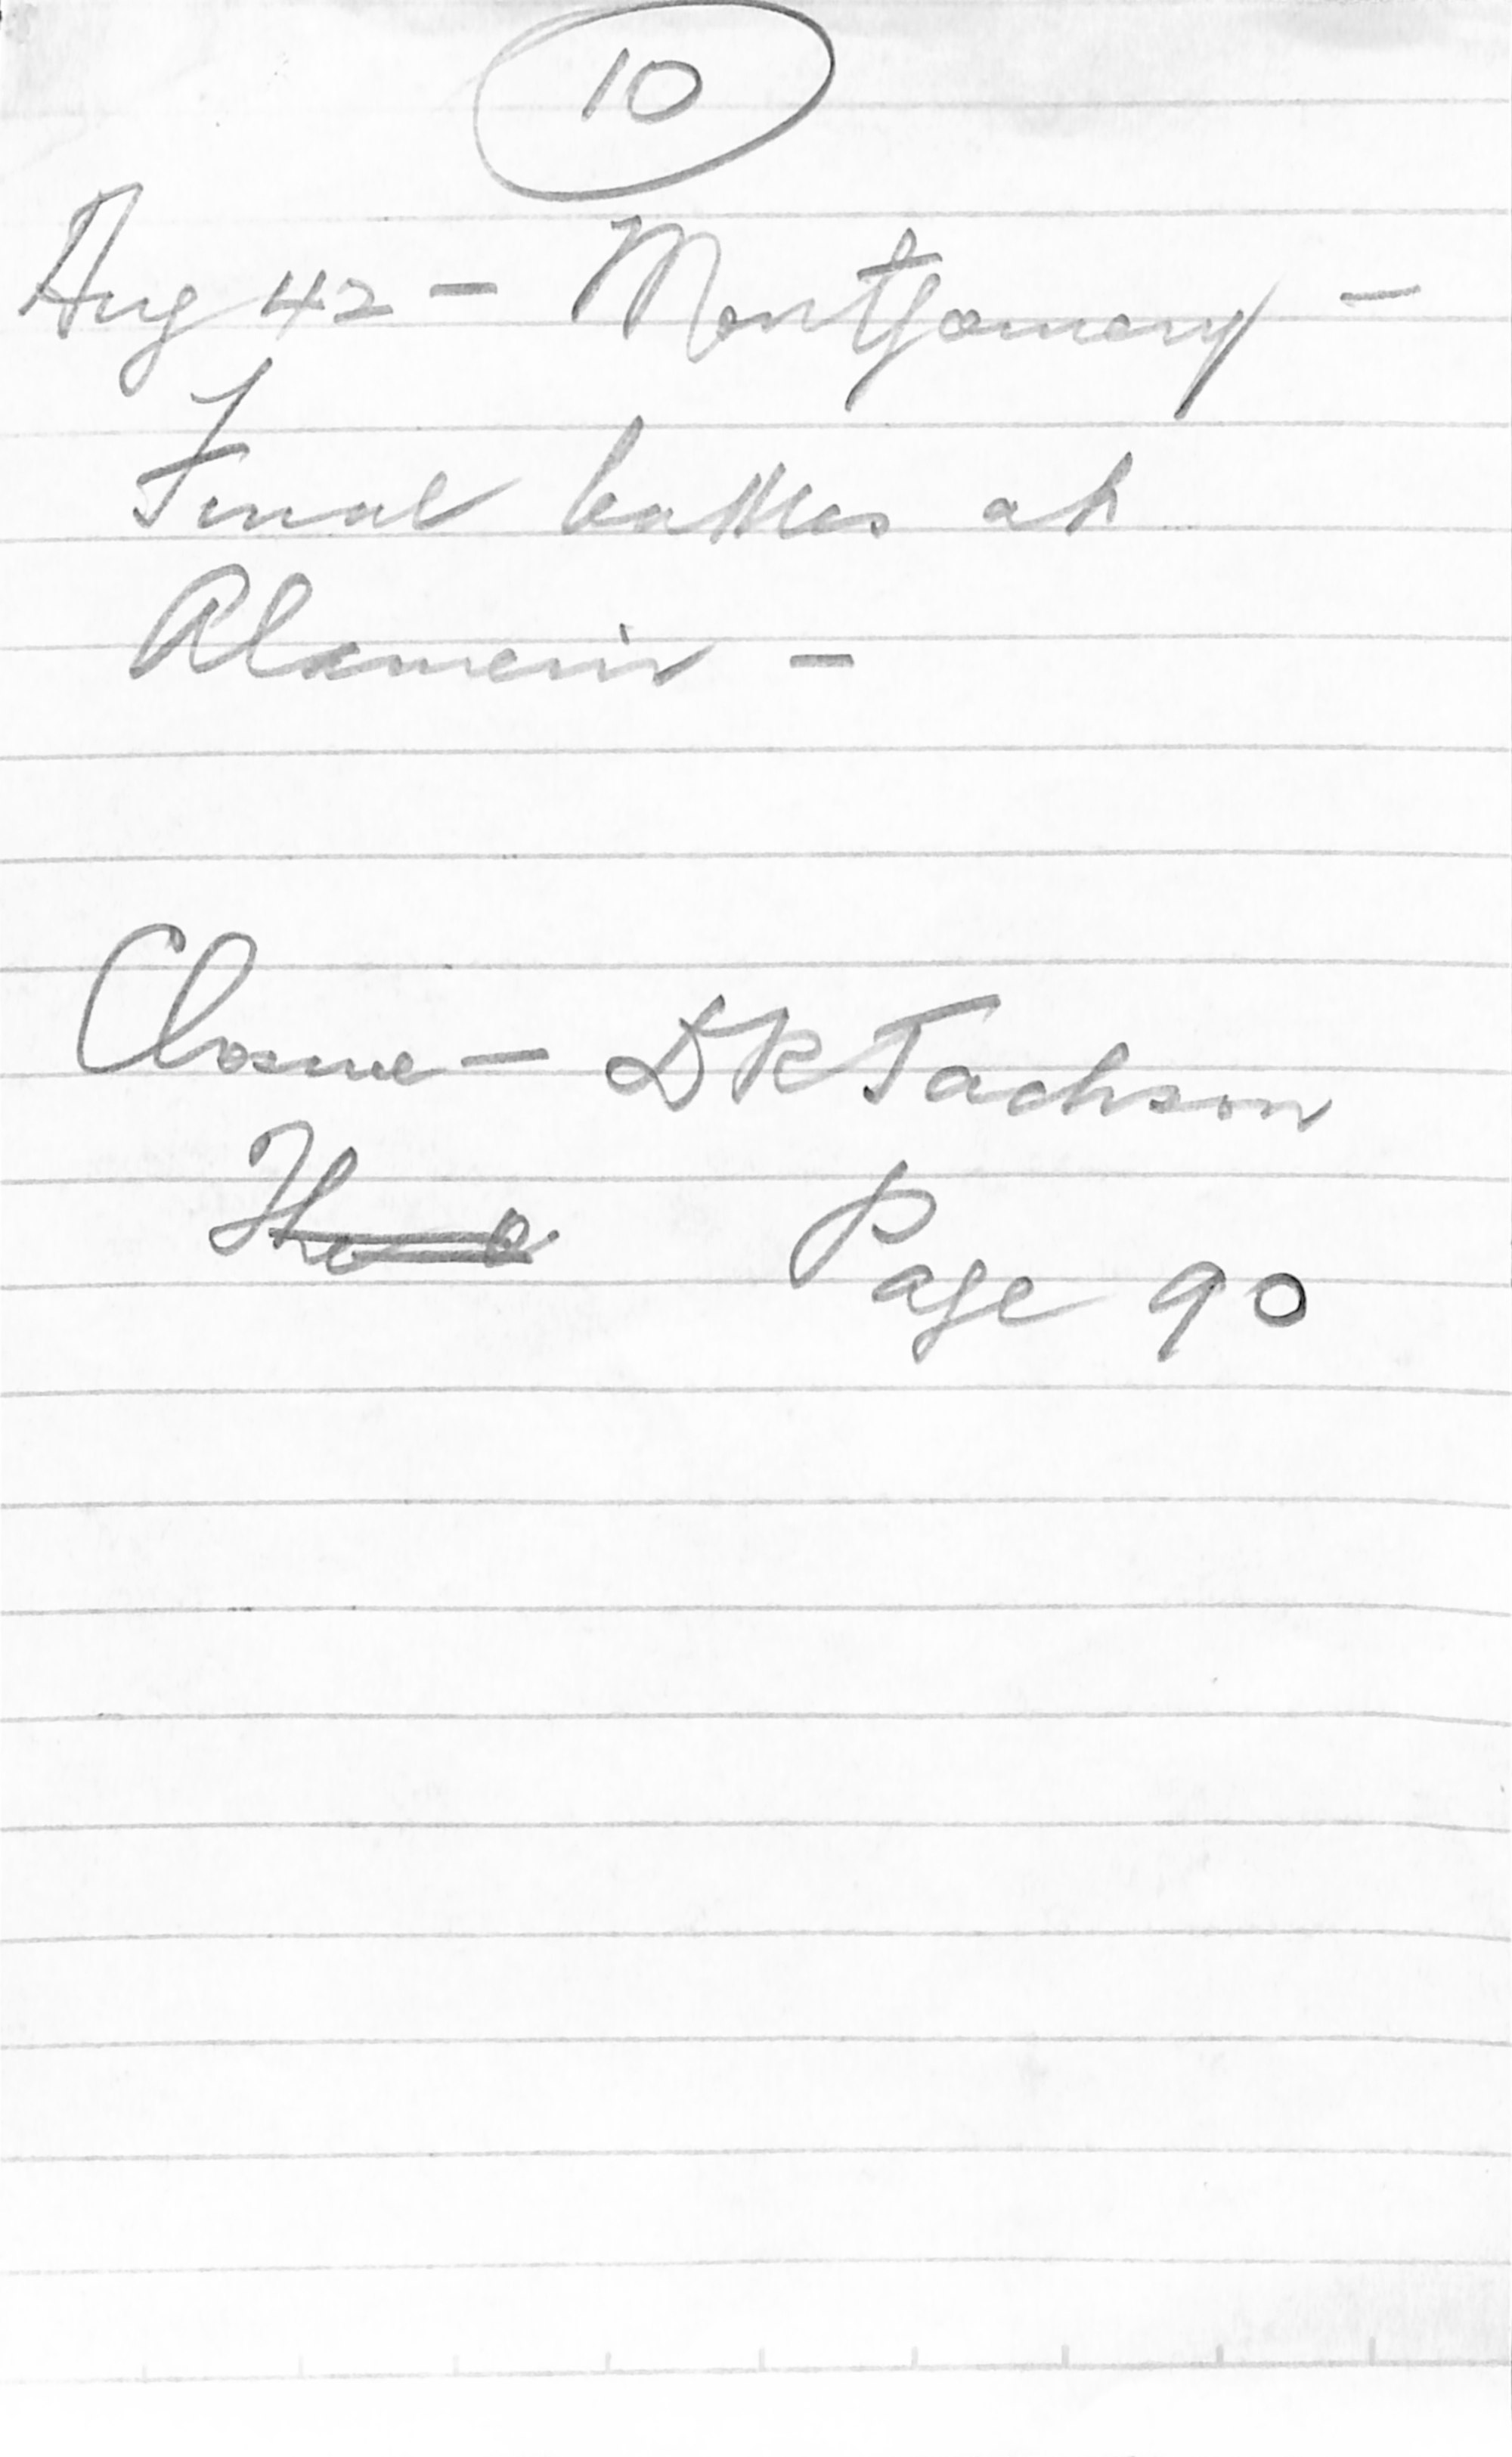 10
Aug 42 - Montgomery -
Final battles at
Alamein -
Closure - DR Jackson
Page 90